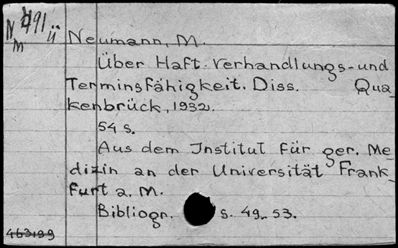 Neumann, M.
Über Haft- Verhandlungs- und
Terminsfähigkeit. Diss. Qua-
kenbrück, 1932.
54 s.
Aus dem Institut für ger. Me-
dizin an der Universität Frank-
furt a. M.
Bibliogr. s. 49-53.
463199